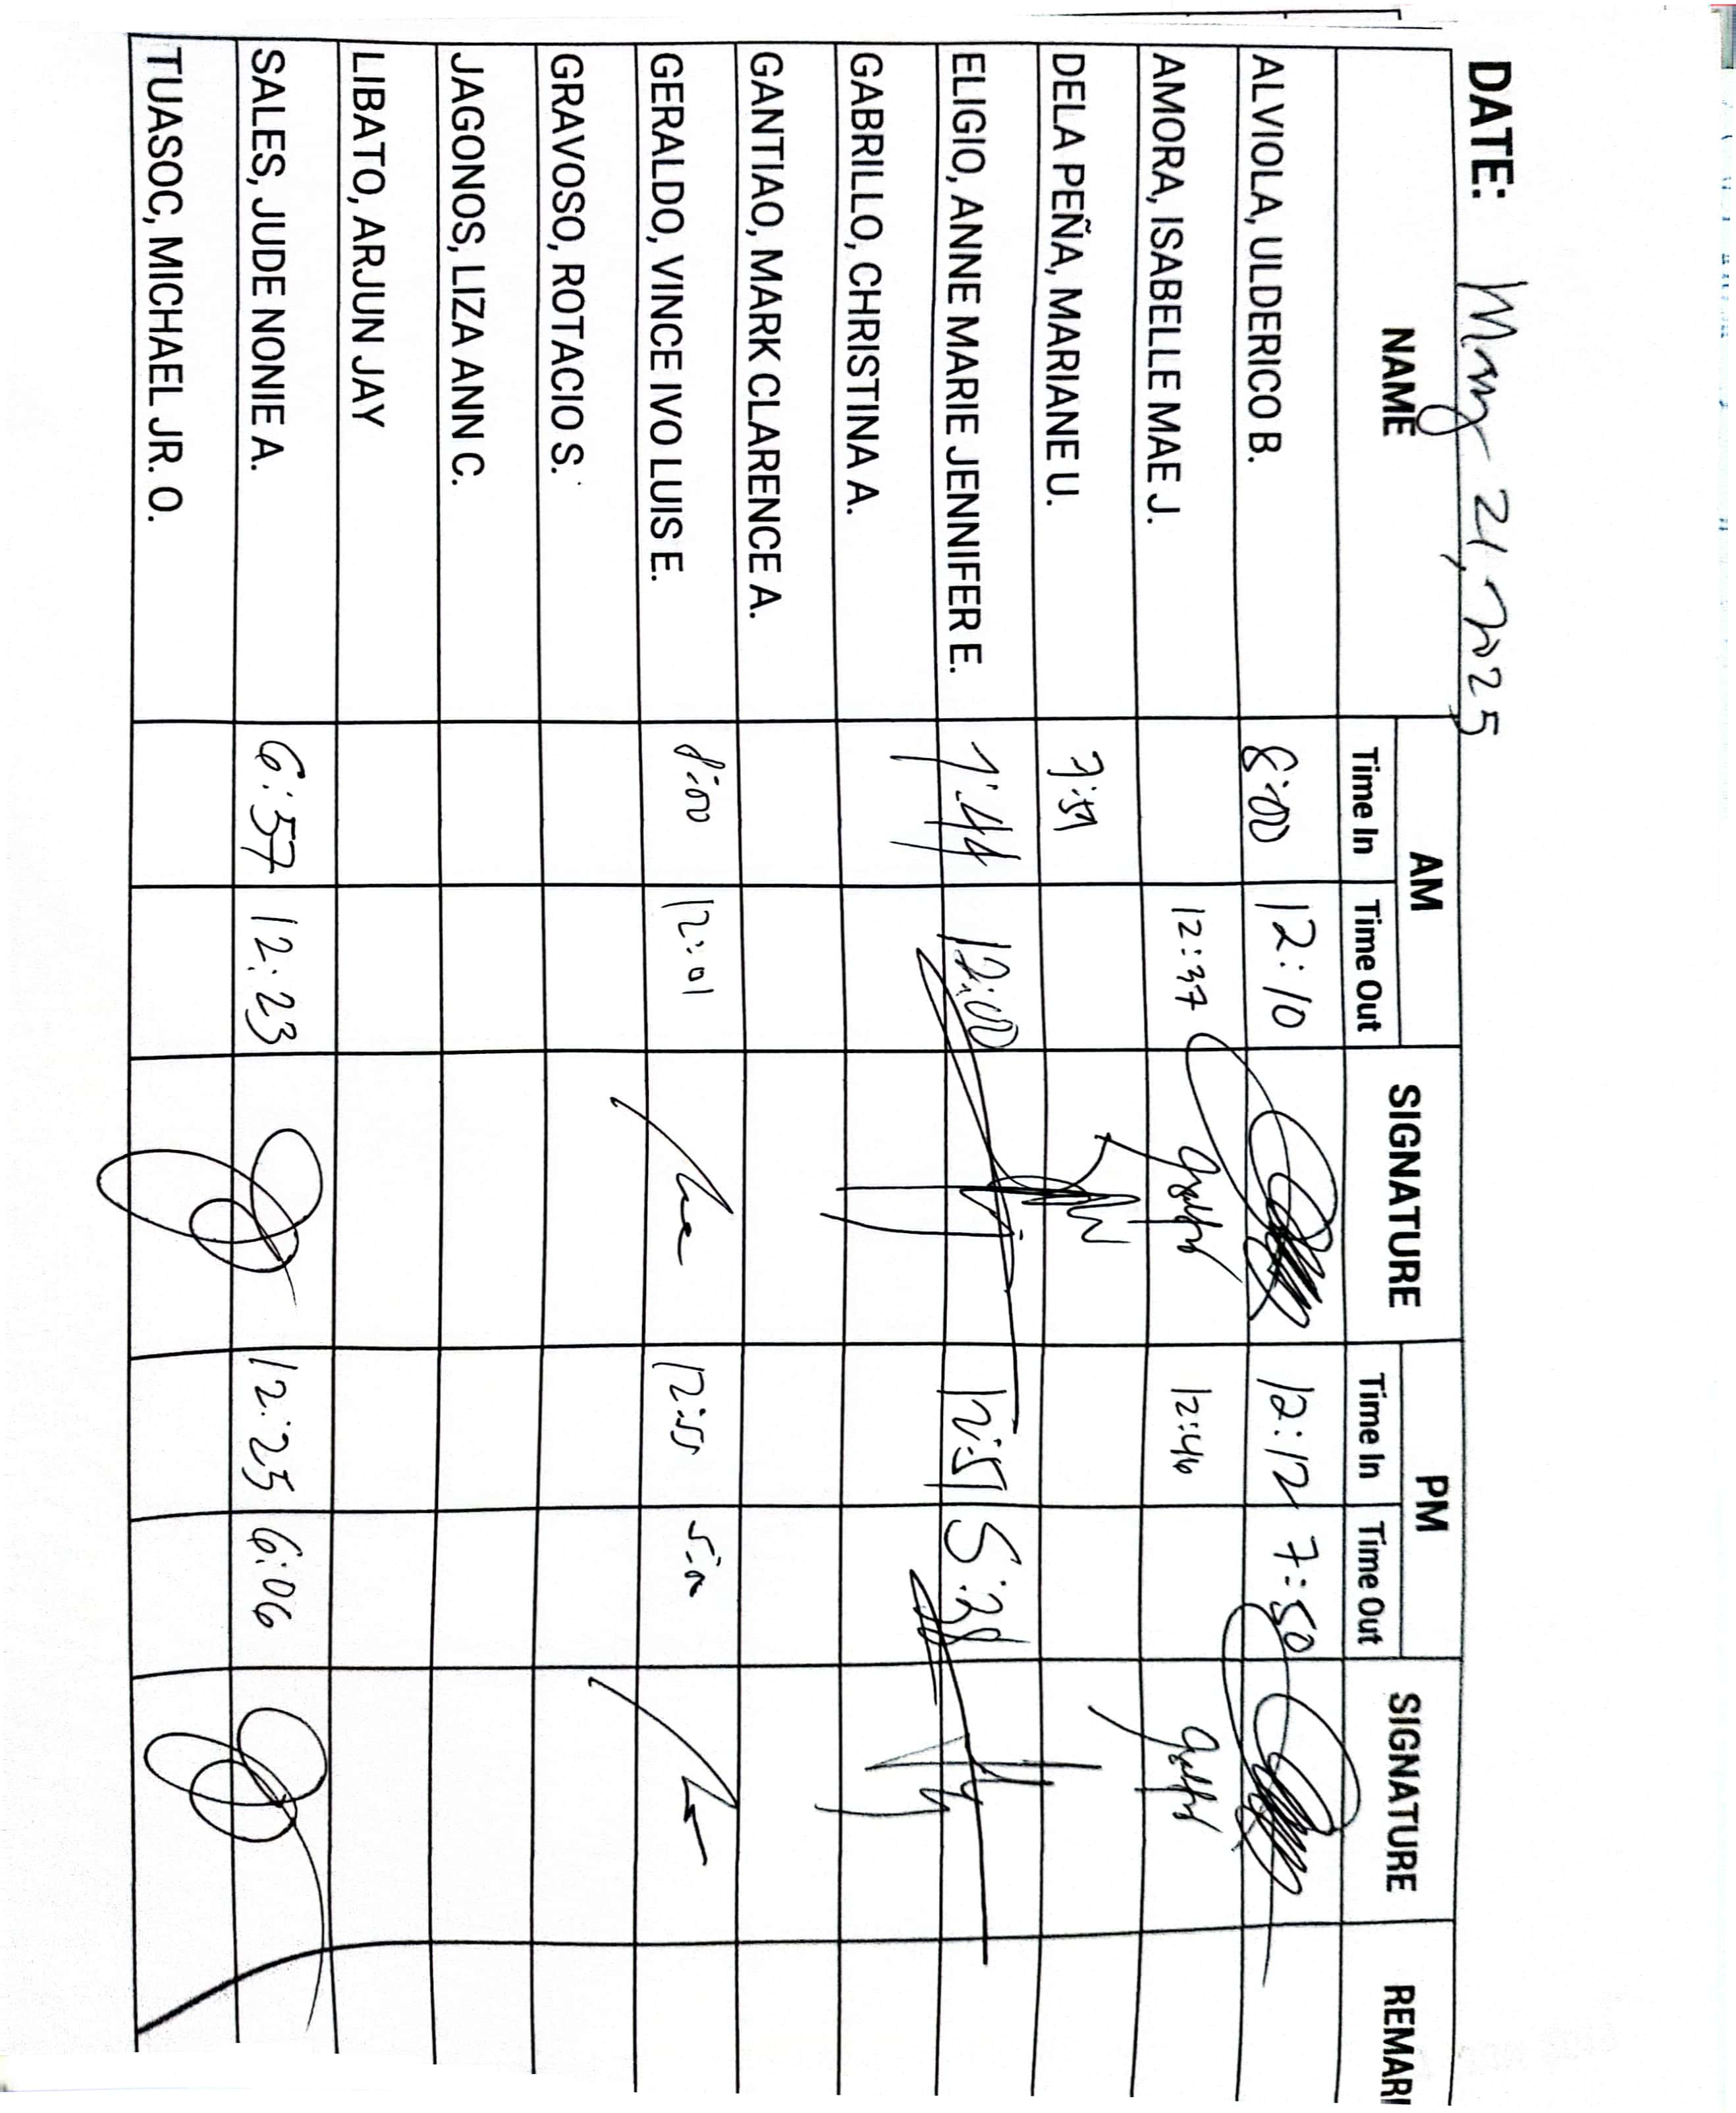 DATE: May 21, 2025
NAME AM SIGNATURE PM SIGNATURE REMAR
Time In Time Out Time In Time Out
ALVIOLA, ULDERICO B. 8:00 12:10 12:12 7:50
AMORA, ISABELLE MAE J. 12:37 12:46
DELA PEÑA, MARIANE U. 7:59
ELIGIO, ANNE MARIE JENNIFER E. 7:44 12:00 12:51 5:28
GABRILLO, CHRISTINA A.
GANTIAO, MARK CLARENCE A.
GERALDO, VINCE IVO LUIS E. 8:00 12:01 12:55
GRAVOSO, ROTACIO S.
JAGONOS, LIZA ANN C.
LIBATO, ARJUN JAY
SALES, JUDE NONIE A. 6:57 12:23 12:25 6:06
TUASOC, MICHAEL JR. O.